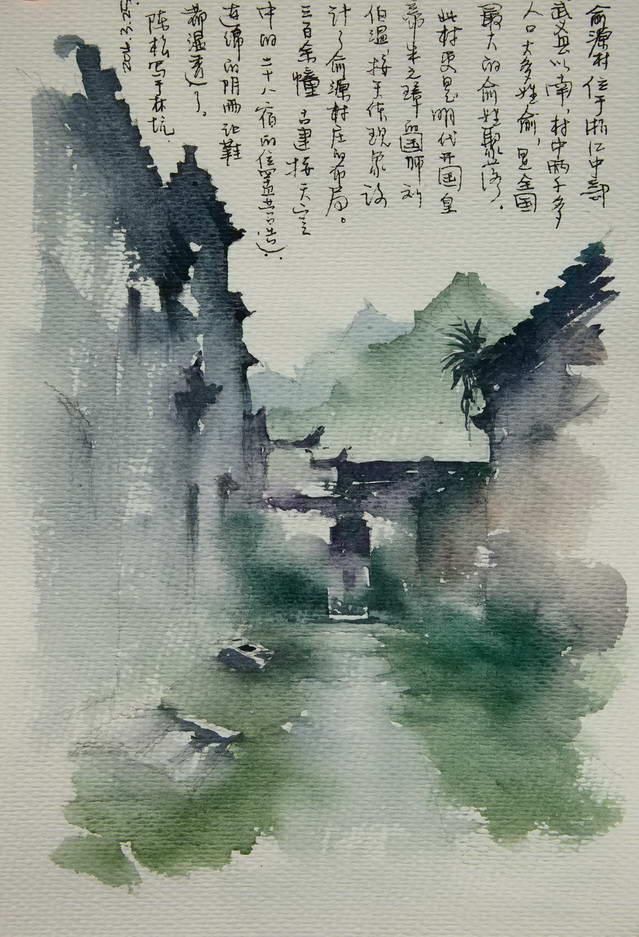 俞源村位于浙江中部
武义县以南，村中两千多
人口大多姓俞，是全国
最大的俞姓聚落。
此村更是明代开国皇
帝朱元璋的国师刘
伯温按天体现象设
计了俞源村庄的布局。
三百余幢古建按天宫
中的二十八宿的位置营造。
连绵的阴雨让鞋
都湿透了。
陈松写于林坑.
2012.3.25.